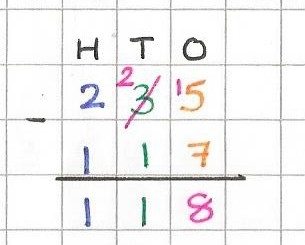 H T O
2 2 3 1 5
-
1 1 7
1 1 8